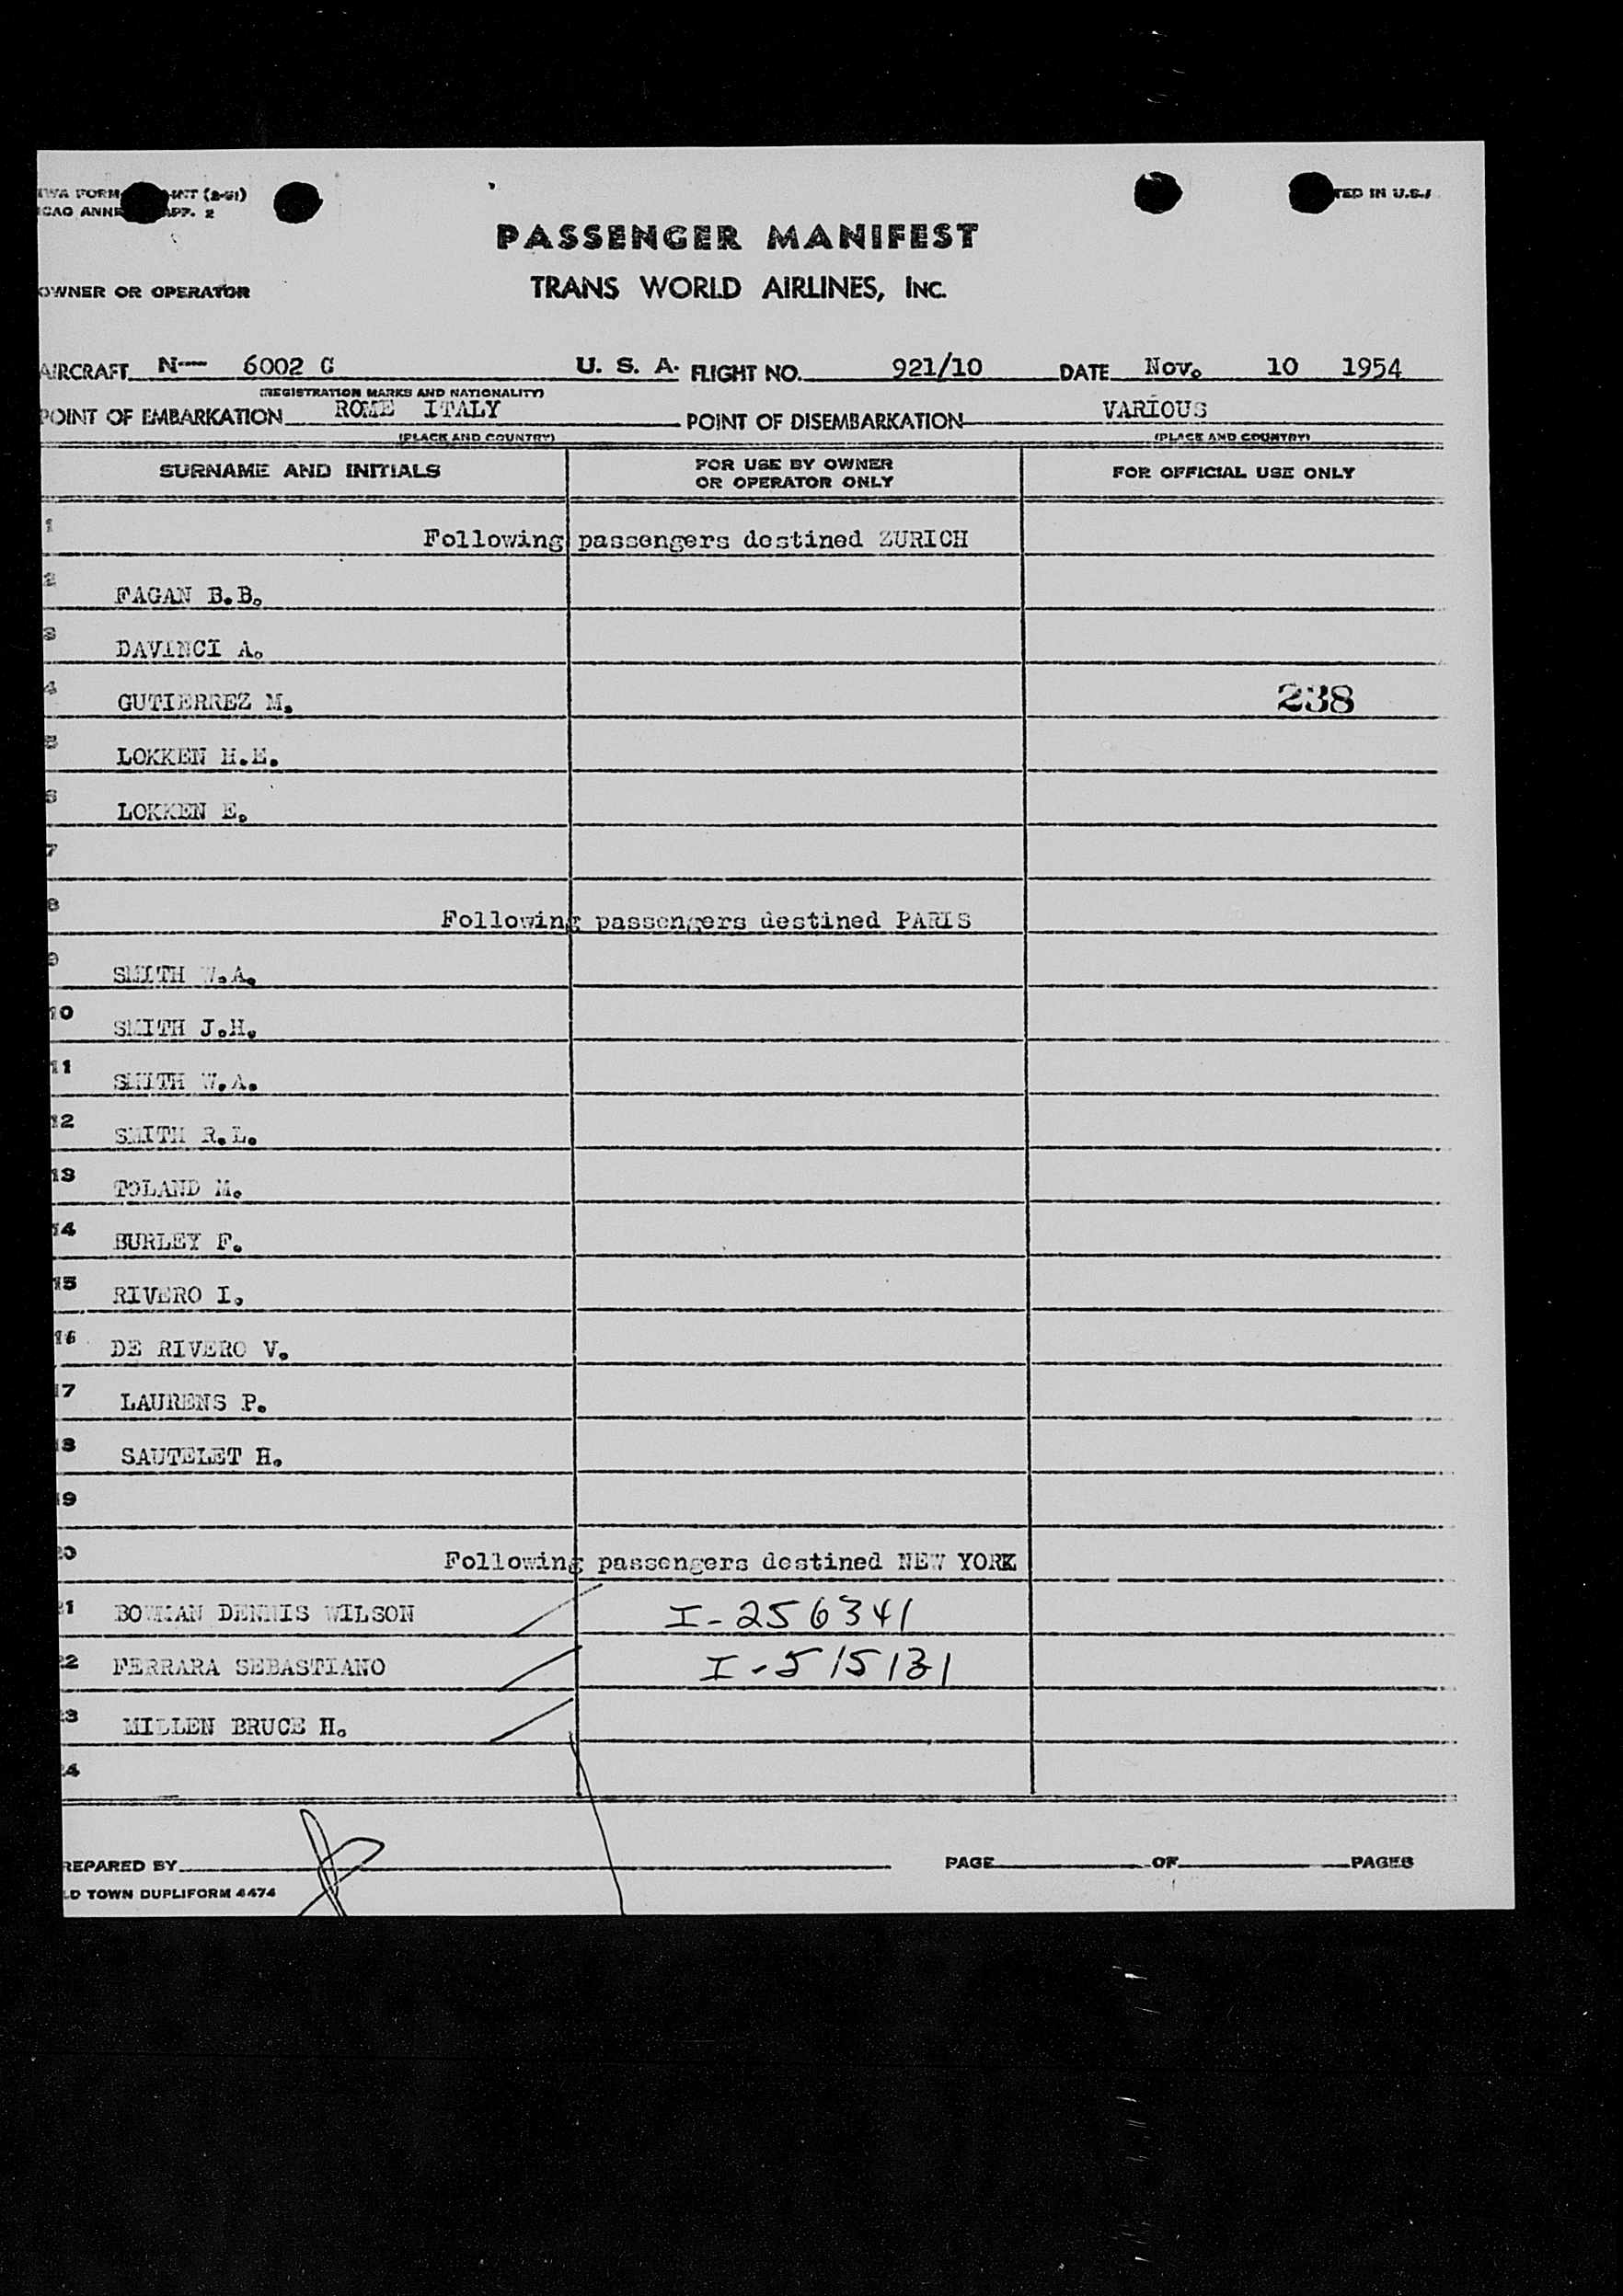 TWA FORM -INT (2-51)
ICAO ANNE APP. 2
TED IN U.S.A
PASSENGER MANIFEST
OWNER OR OPERATOR TRANS WORLD AIRLINES, INC.
AIRCRAFT N— 6002 C U. S. A. FLIGHT NO. 921/10 DATE Nov. 10 1954
(REGISTRATION MARKS AND NATIONALITY)
POINT OF EMBARKATION ROME ITALY POINT OF DISEMBARKATION VARIOUS
(PLACE AND COUNTRY) (PLACE AND COUNTRY)
SURNAME AND INITIALS FOR USE BY OWNER OR OPERATOR ONLY FOR OFFICIAL USE ONLY
1 Following passengers destined ZURICH
2 FAGAN B.B.
3 DAVINCI A.
4 GUTIERREZ M. 238
5 LOKKEN H.E.
6 LOKKEN E.
7
8 Following passengers destined PARIS
9 SMITH W.A.
10 SMITH J.H.
11 SMITH W.A.
12 SMITH R.L.
13 TOLAND M.
14 BURLEY F.
15 RIVERO I.
16 DE RIVERO V.
17 LAURENS P.
18 SAUTELET H.
19
20 Following passengers destined NEW YORK
21 BOWMAN DENNIS WILSON I-256341
22 FERRARA SEBASTIANO I-515131
23 MILLEN BRUCE H.
24
REPARED BY PAGE OF PAGES
LD TOWN DUPLIFORM 4474